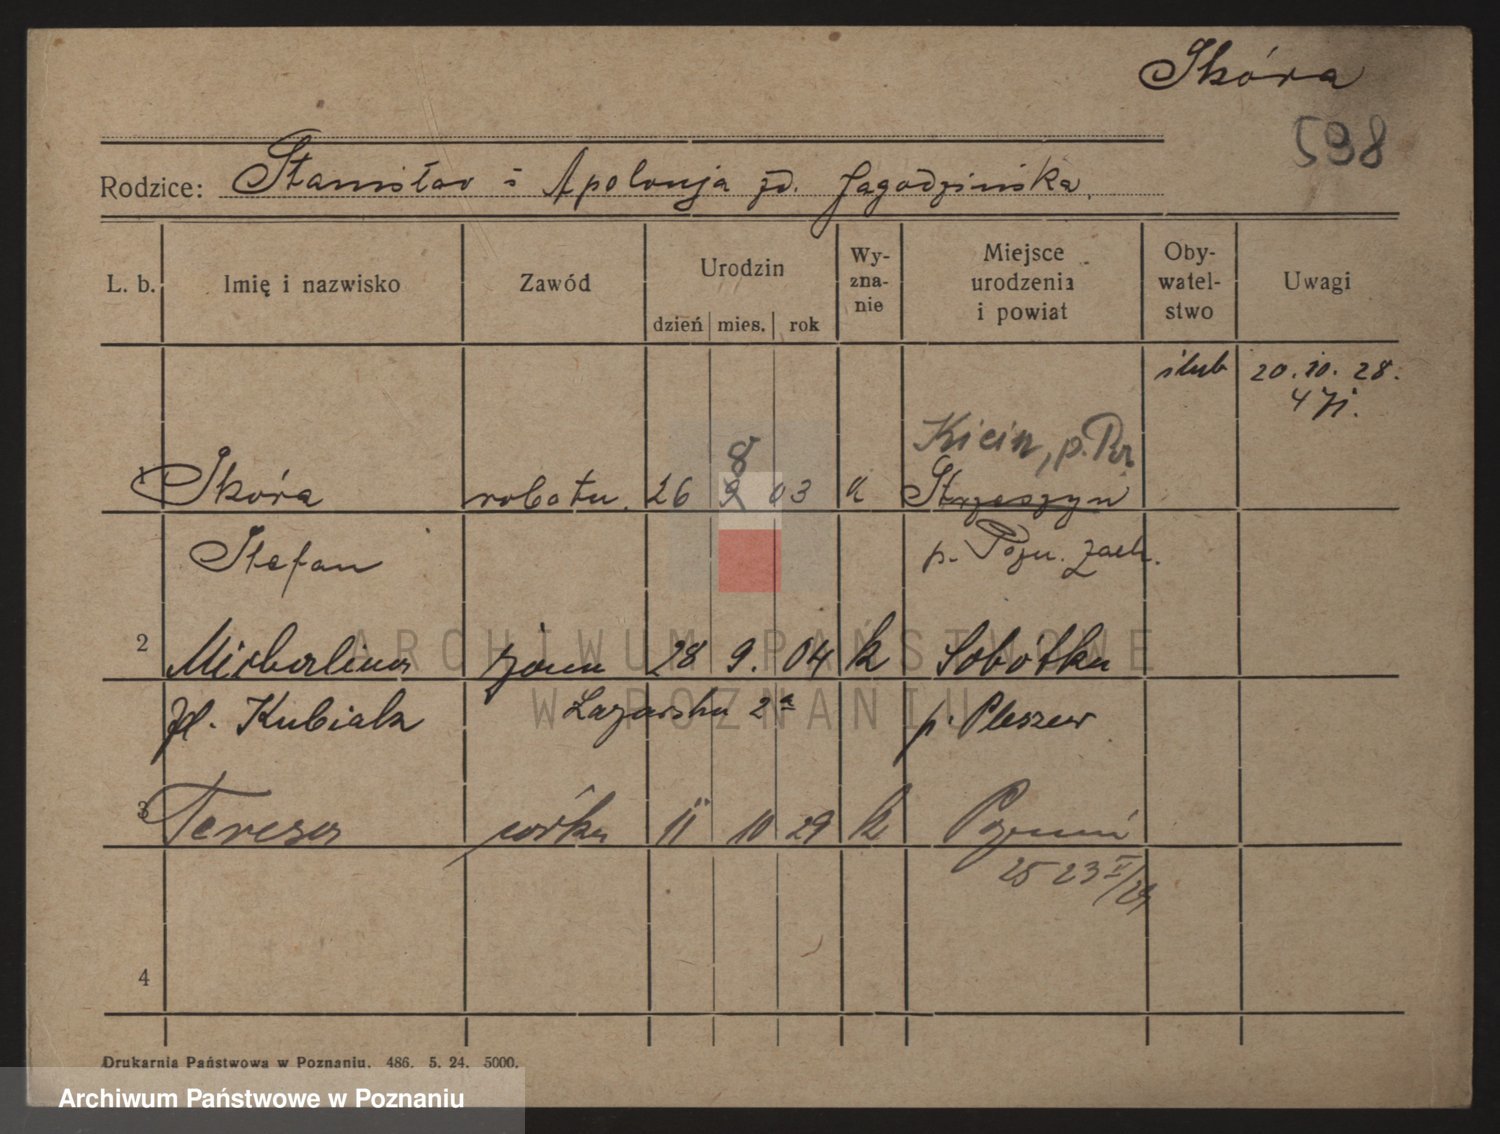 Skóra
598
Rodzice: Stanisław i Apolonja zd. Jagodzińska
L. b. Imię i nazwisko Zawód Urodzin dzień mies. rok Wy-zna-nie Miejsce urodzenia i powiat Oby-watel-stwo Uwagi
ślub 20.10.28.
Kicin, p.
8
Skóra robotn. 26 9 03 k Strzeszyn
Stefan p. Pozn. Zach.
2 żona 28 9. 04 k Sobótka
zd. Kubiak 2a p. Pleszew
3 Teresa córka 11 10 29 k Poznań
4
Drukarnia Państwowa w Poznaniu. 486. 5. 24. 5000.
ARCHIWUM PAŃSTWOWE
W POZNANIU
Archiwum Państwowe w Poznaniu